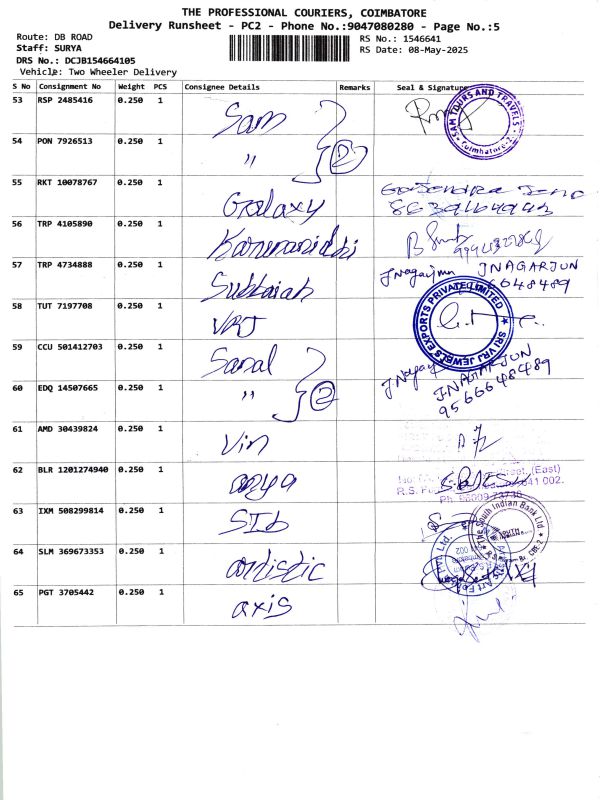 THE PROFESSIONAL COURIERS, COIMBATORE
Delivery Runsheet - PC2 - Phone No.:9047080280 - Page No.:5
Route: DB ROAD
RS No.: 1546641
Staff: SURYA
RS Date: 08-May-2025
DRS No.: DCJB154664105
Vehicle: Two Wheeler Delivery
S No Consignment No Weight PCS Consignee Details Remarks Seal & Signature
53 RSP 2485416 0.250 1 Sam
SAM TOURS AND TRAVELS
Coimbatore-2
54 PON 7926513 0.250 1 " 2
55 RKT 10078767 0.250 1 Galaxy
56 TRP 4105890 0.250 1
57 TRP 4734888 0.250 1 Subbaiah J.Nagarjun J NAGARJUN
58 TUT 7197708 0.250 1 VRJ
SRI VRJ JEWELS EXPORTS PRIVATE LIMITED
59 CCU 501412703 0.250 1 Sanal
J.NAGARJUN
9566648489
60 EDQ 14507665 0.250 1 " 2
61 AMD 30439824 0.250 1 Vin
62 BLR 1201274940 0.250 1
Street, (East)
R.S. 641 002.
Ph:
63 IXM 508299814 0.250 1 SIb
The South Indian Bank Ltd.
64 SLM 369673353 0.250 1 artistic
65 PGT 3705442 0.250 1 axis